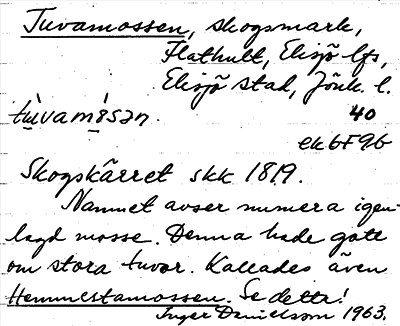 Tuvamossen, skogsmark,
Flathult, Eksjö lfs,
Eksjö stad, Jönk. l.
tùvamòsən. 40
ek6F9b
Skogskärret skk 1819.
Namnet avser numera igen-
lagd mosse. Denna hade gott
om stora tuvor. Kallades även
Hemmestamossen. Se detta!
Inger Danielsson 1963.